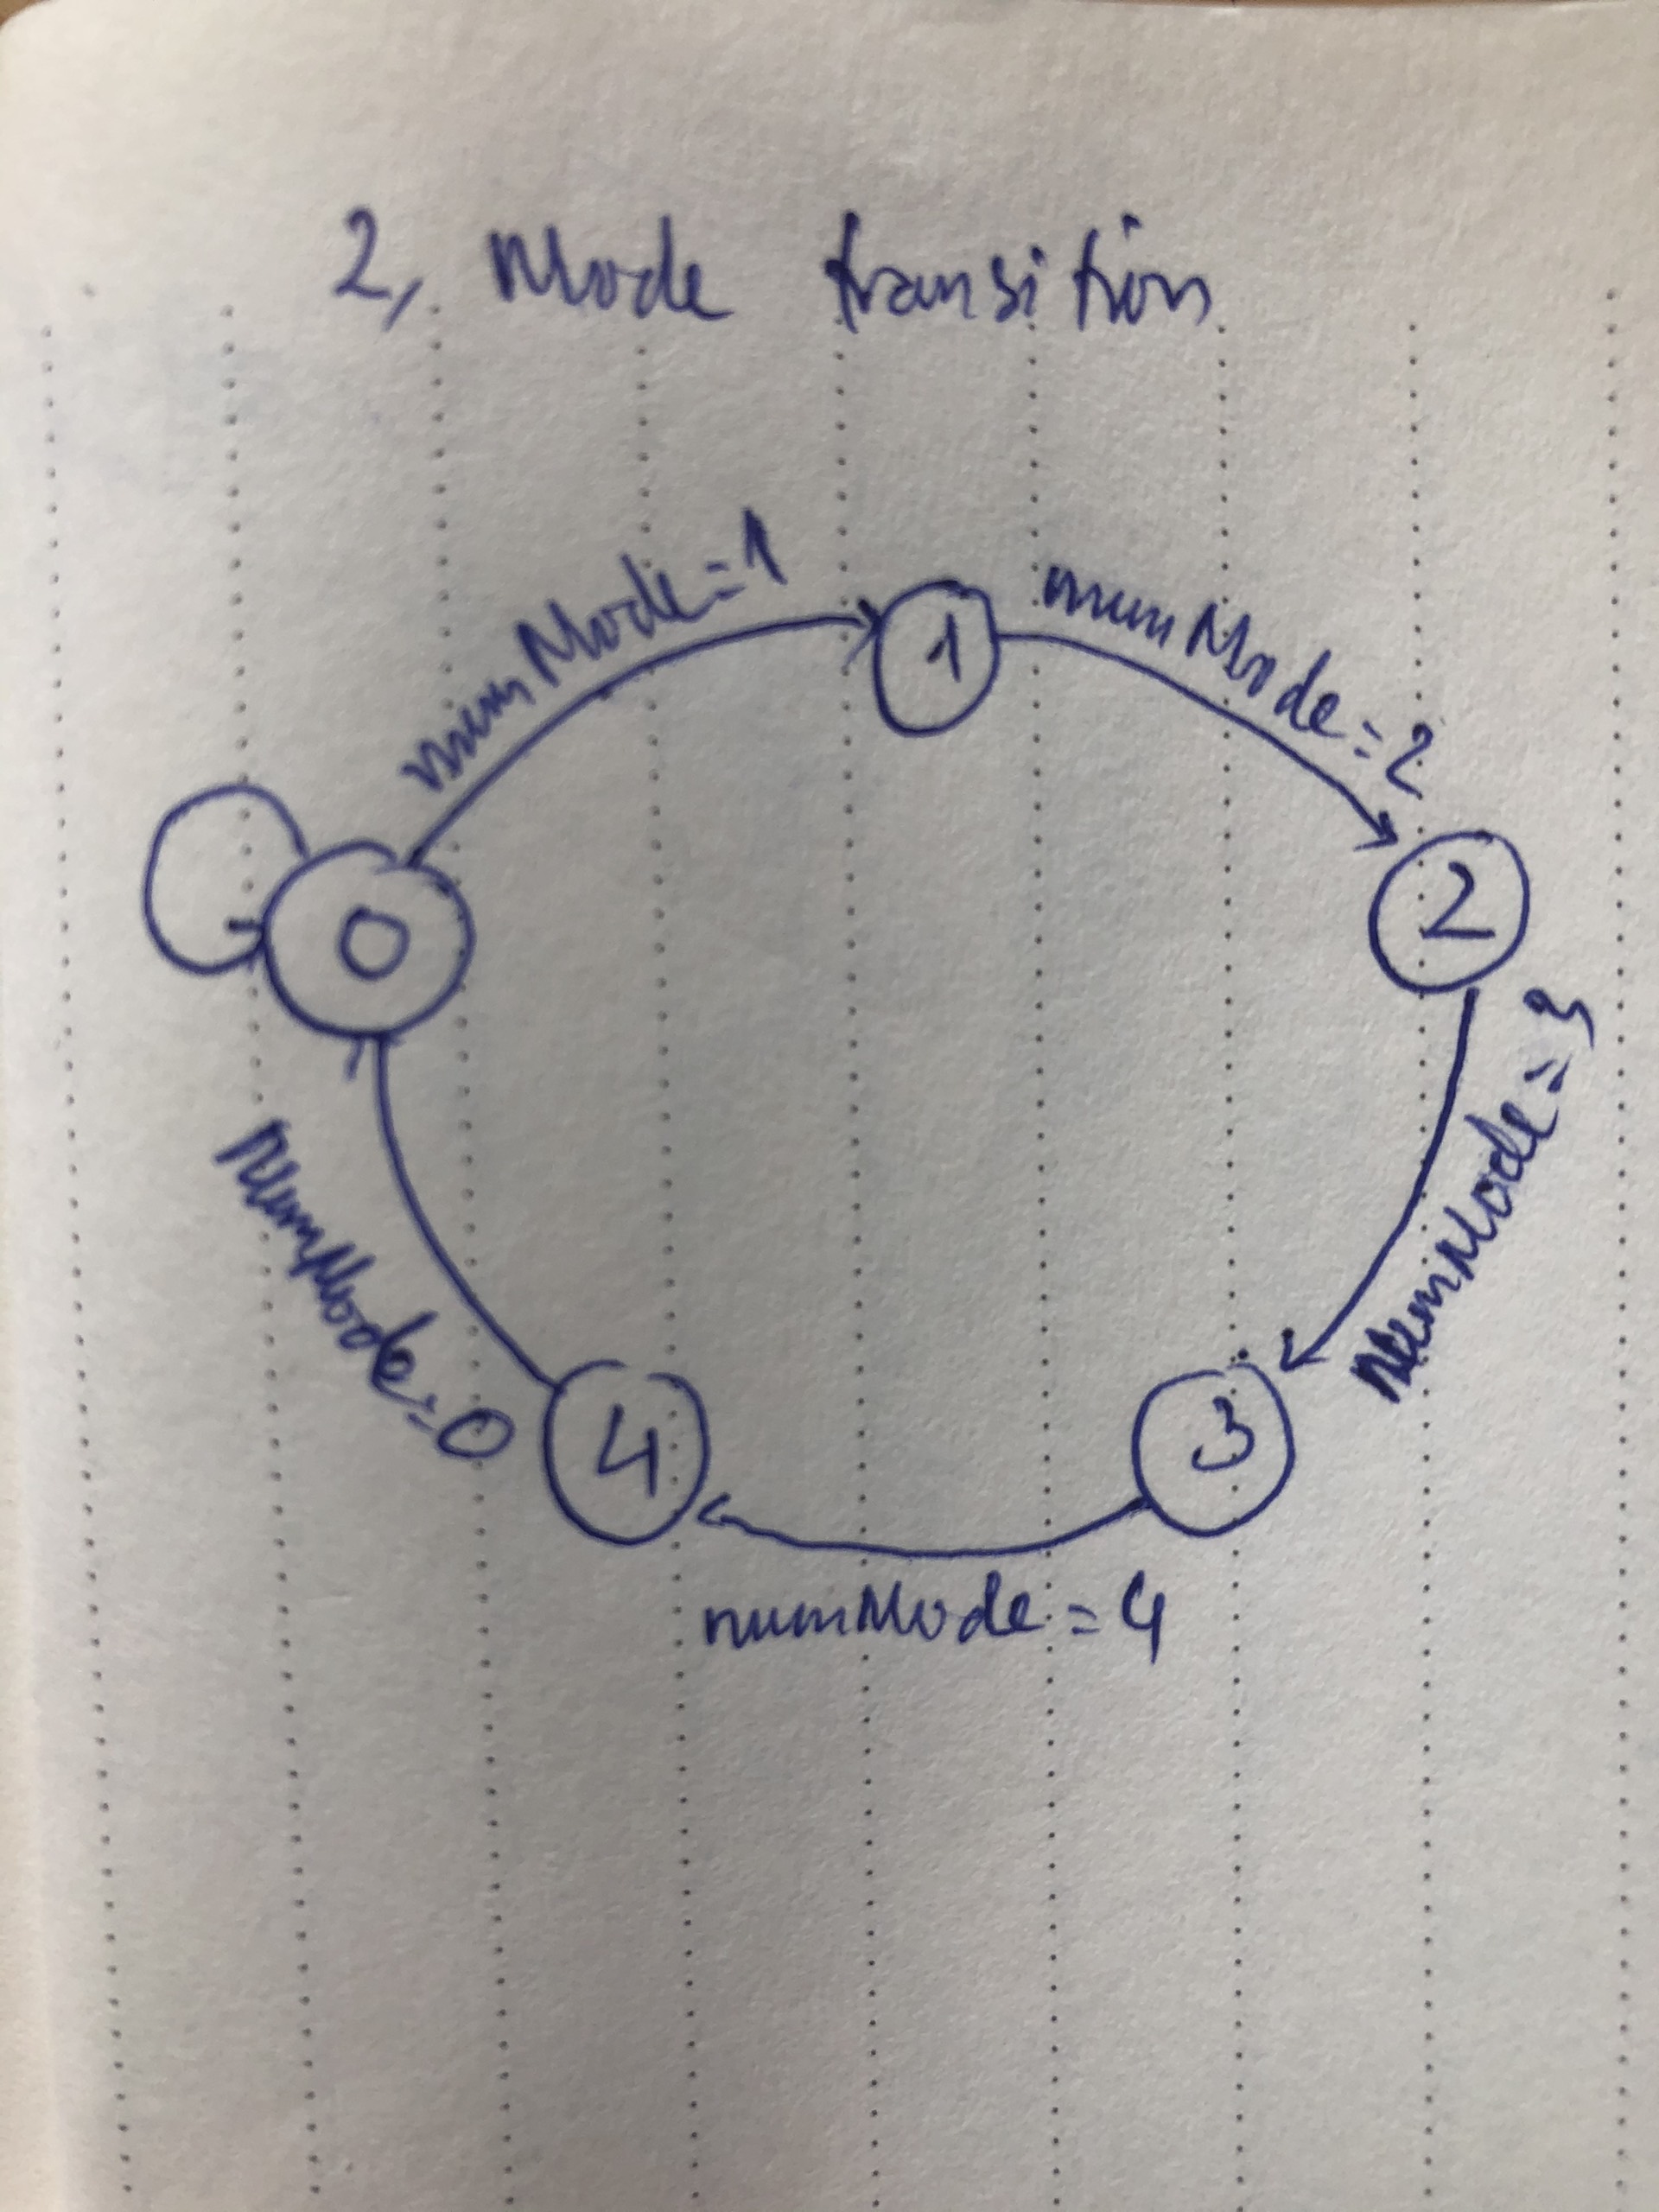 2, Mode transition
numMode=1
1
numMode=2
0
2
numMode=3
numMode=0
4
3
numMode=4